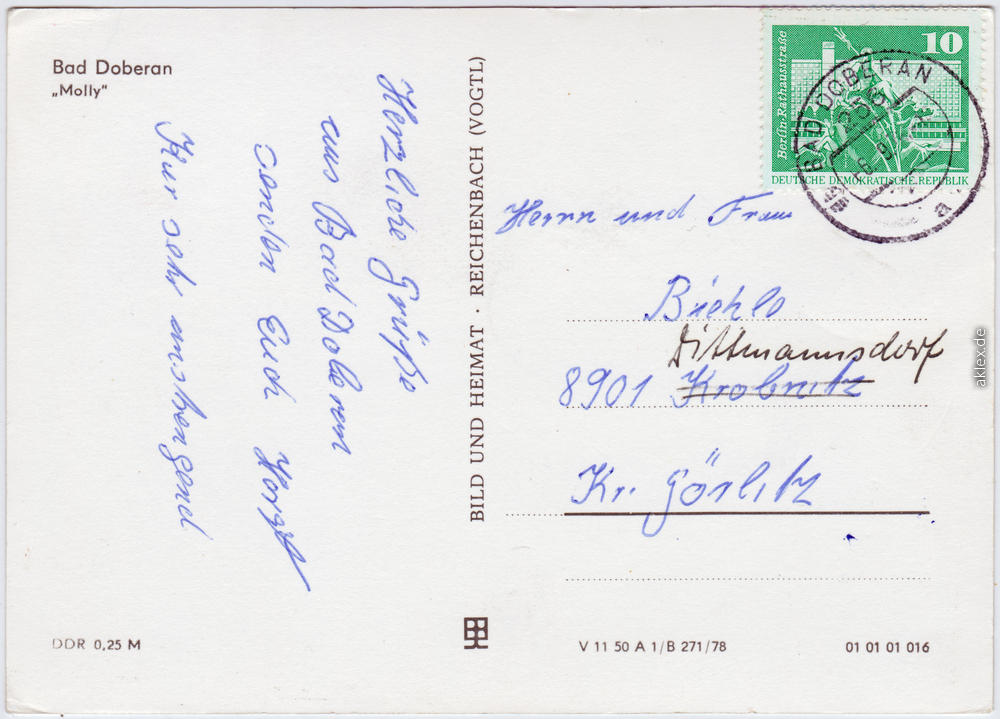 Bad Doberan
„Molly"
Herzliche Grüße
aus Bad Doberan
senden Euch Horst
Kur sehr anstrengend
BILD UND HEIMAT · REICHENBACH (VOGTL)
10
Berlin, Rathausstraße
DEUTSCHE DEMOKRATISCHE REPUBLIK
BAD DOBERAN
a
Herrn und Frau
Dittmannsdorf
8901 Krobnitz
Kr. Görlitz
DDR 0,25 M
V 11 50 A 1/B 271/78
01 01 01 016
aklex.de